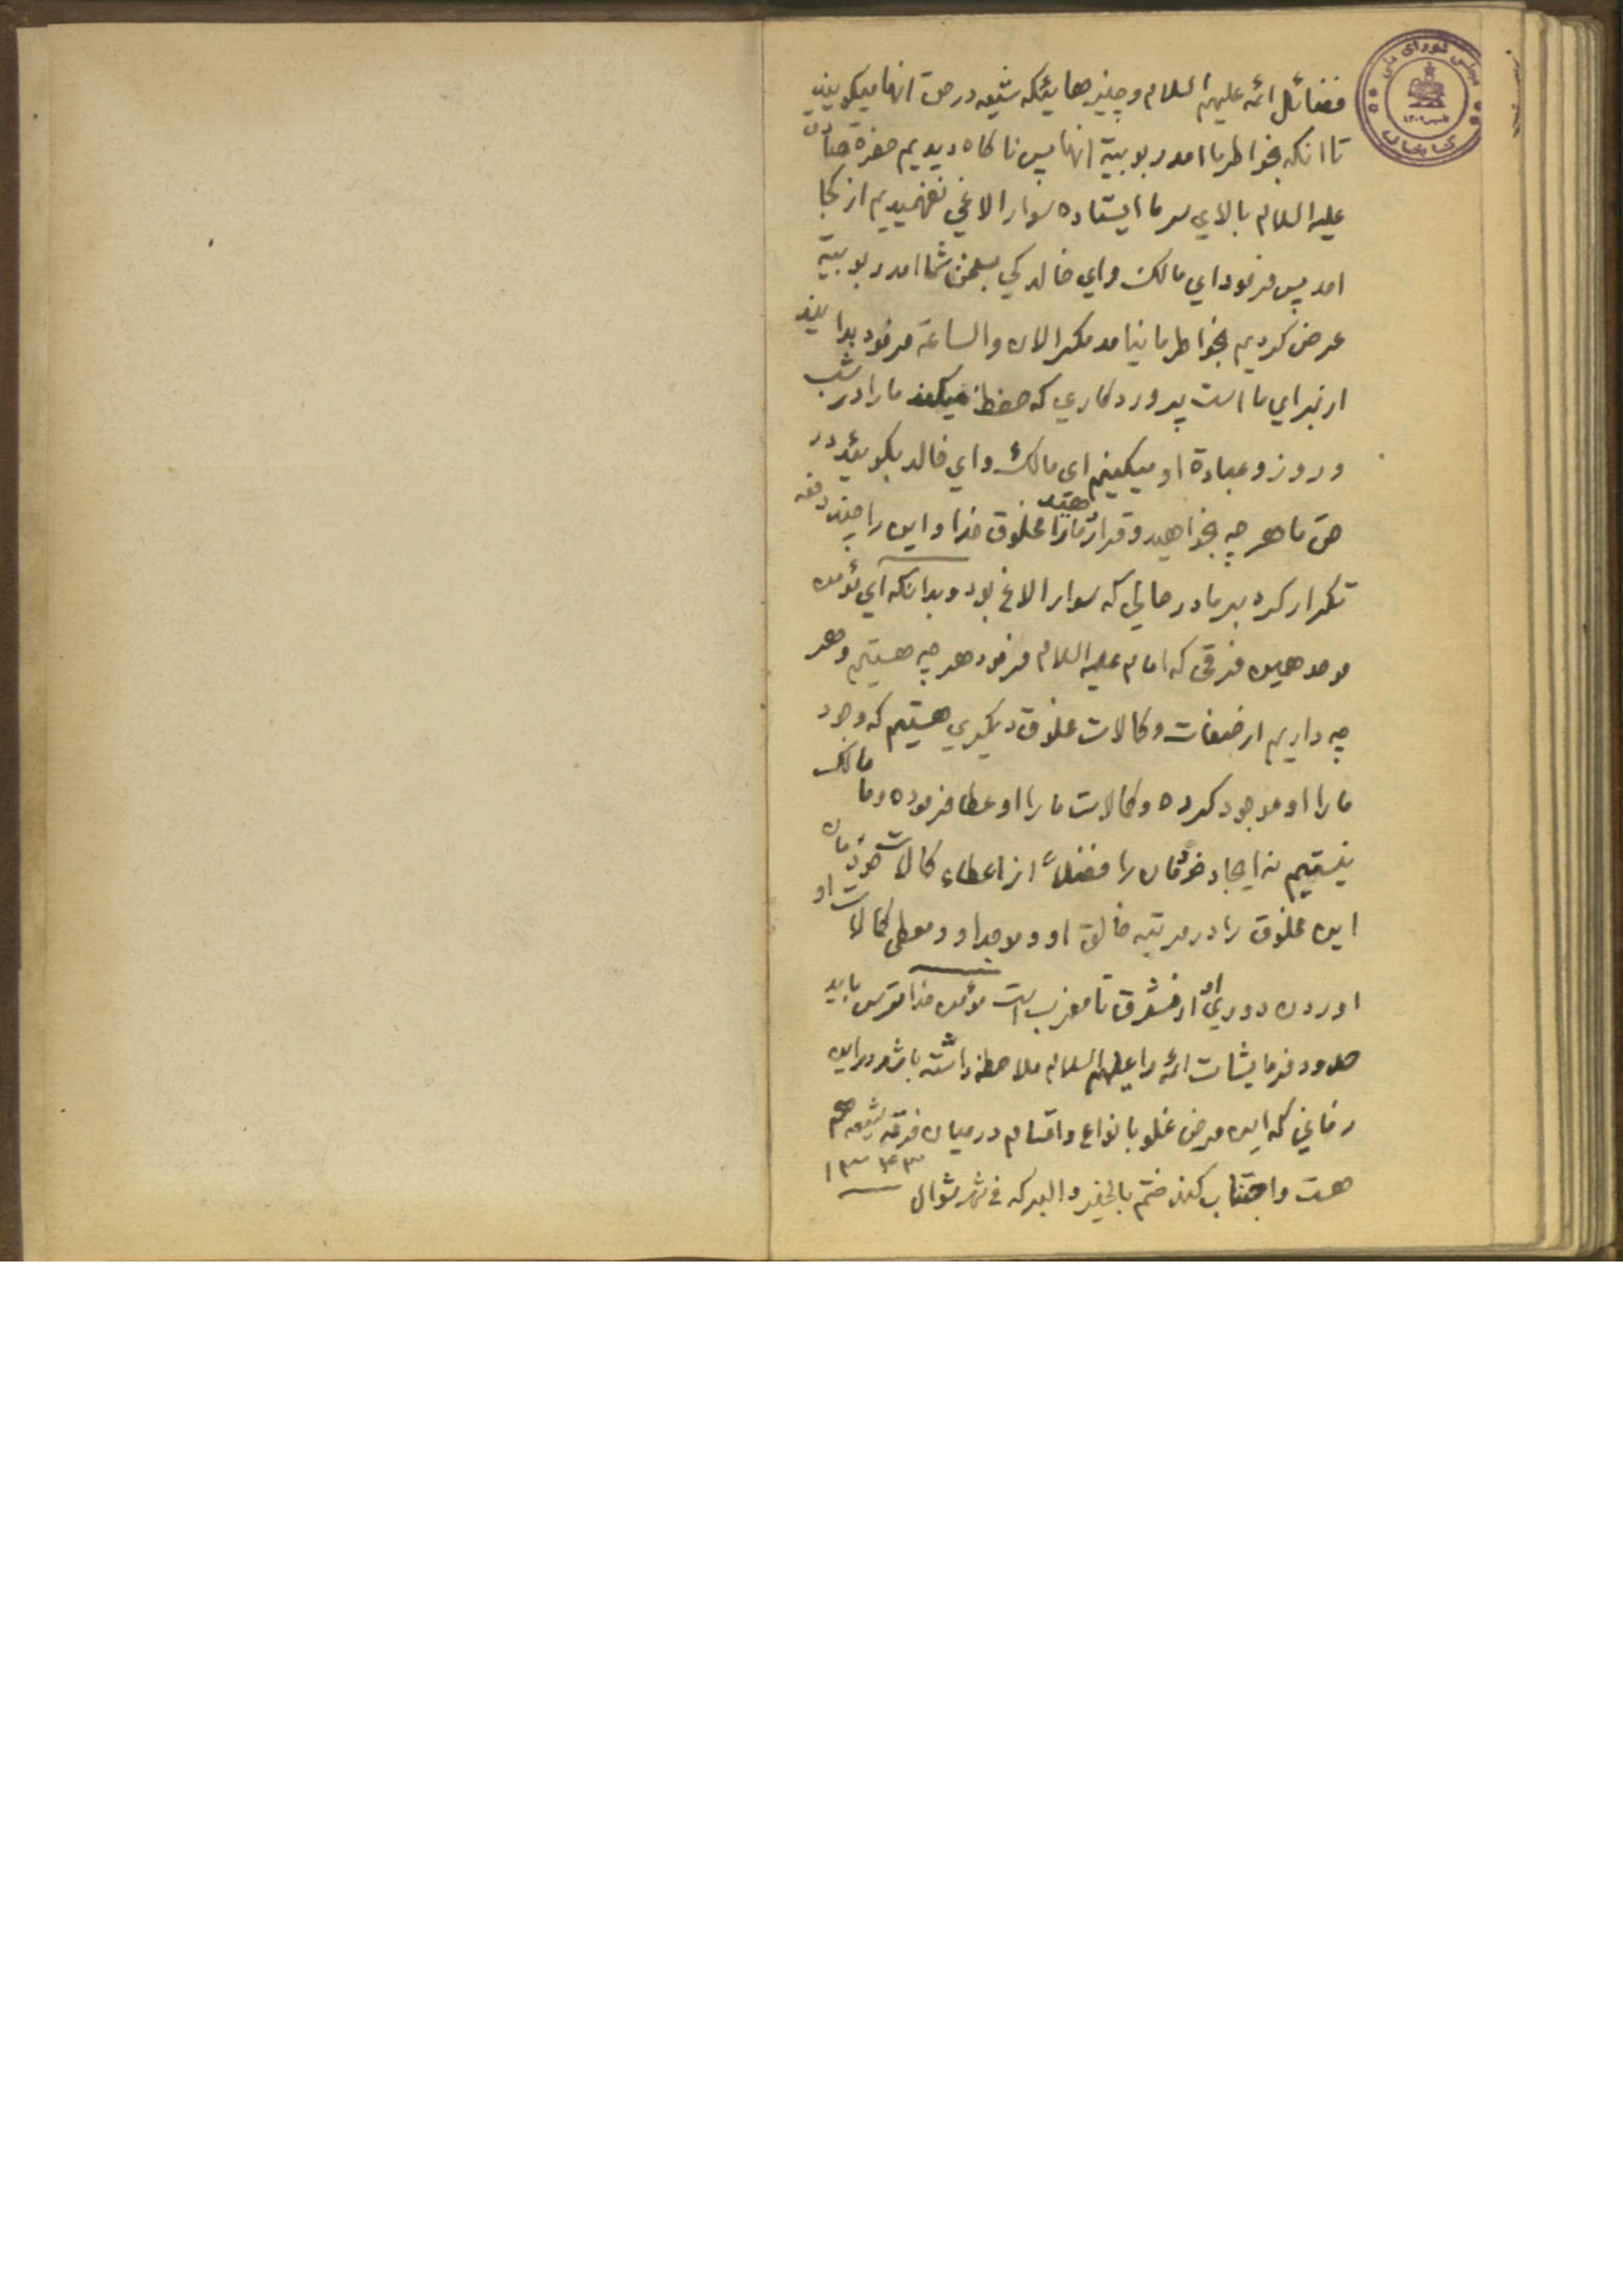 فضائل ائمه علیهم السلام و چیزهائیکه شیعه در حق انها میگویند
تا انکه بخواطر ما امد ربوبیة انها پس ناکاه دیدیم حضرة صادق
علیه السلام بالای سر ما ایستاده سوار الاغی نفهمیدیم از کجا
امد پس فرمود ای مالک و ای خالد کی شما امد ربوبیة
عرض کردیم بخواطر ما نیامد مکر الان والساعة فرمود بدانید
از برای ما است پروردکاری که حفظ میکند ما را در شب
و روز و عبادة او میکنیم ای مالک و ای خالد بکوئید در
حق ما هر چه بخواهید و قرار ما را مخلوق خدا و این را چند دفعه
تکرار کرد بر ما در حالی که سوار الاغ بود و بدانکه ای مؤمن
موحد همین فرقی که امام علیه السلام فرمود هر چه هستیم و هر
چه داریم از صفات و کمالات مخلوق دیکری هستیم که وجود
ما را او موجود کرده و کمالات ما را او عطا فرموده و ما مالک
نیستیم نه ایجاد خودمان را فضلاً از اعطاء کمالات خودمان
این مخلوق را در مرتبه خالق او و موجد او و معطی کمالات او
اوردن دوری او از مشرق تا مغرب است مؤمن خدا ترس باید
حدود فرمایشات ائمه را علیهم السلام ملاحظه داشته باشد در این
زمانی که این مرض غلو بانواع و اقسام در میان فرقه شیعه هم
هست و اجتناب کند ختم بالخیر و البرکه فی شهر شوال ۱۳۴۳
مجلس شورای ملی
کتابخانه